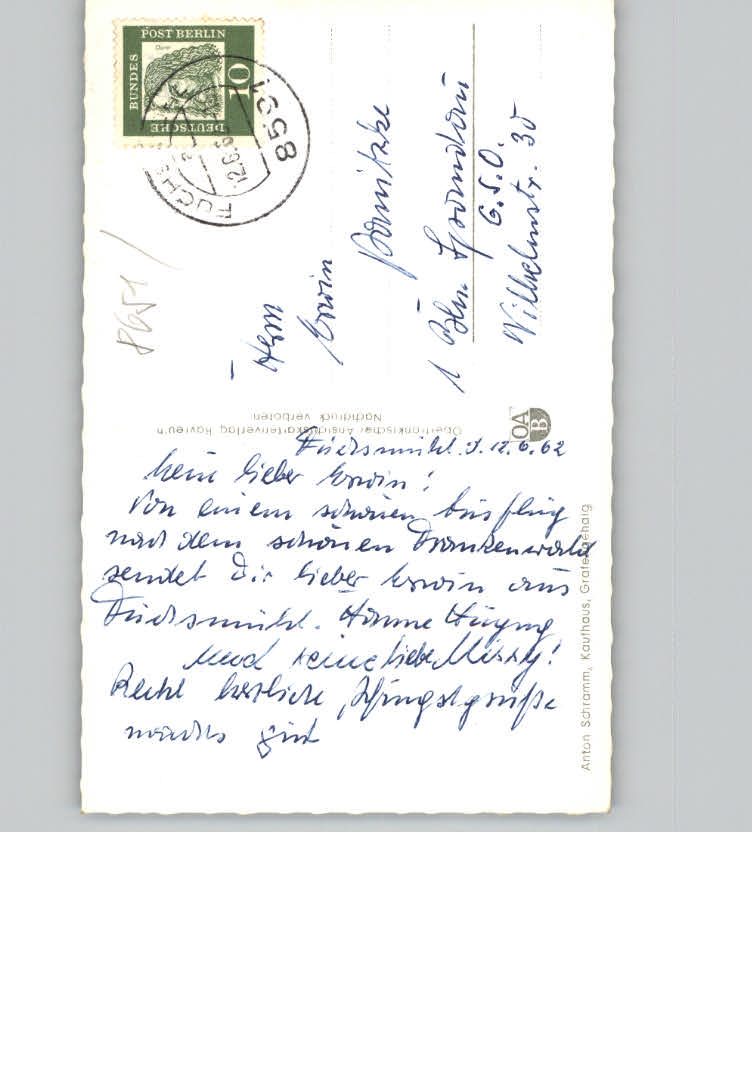 DEUTSCHE
BUNDES
POST BERLIN
10
Dürer
8591
FUCHSMÜHL
12.6.6
8651
Herrn
Erwin
1 Bln. Spandau
G.S.O.
Wilhelmstr. 30
Oberfränkischer Ansichtskartenverlag Bayreuth
Nachdruck verboten
OA
B
Anton Schramm, Kaufhaus, Grafengehaig
Fuchsmühl. d. 12.6.62
Mein lieber Erwin!
Von einem schönen Ausflug
nach dem schönen Frankenwald
sendet Dir lieber Erwin aus
Fuchsmühl. Hanne
und keine liebe
Recht herzliche Pfingstgrüße
machs gut